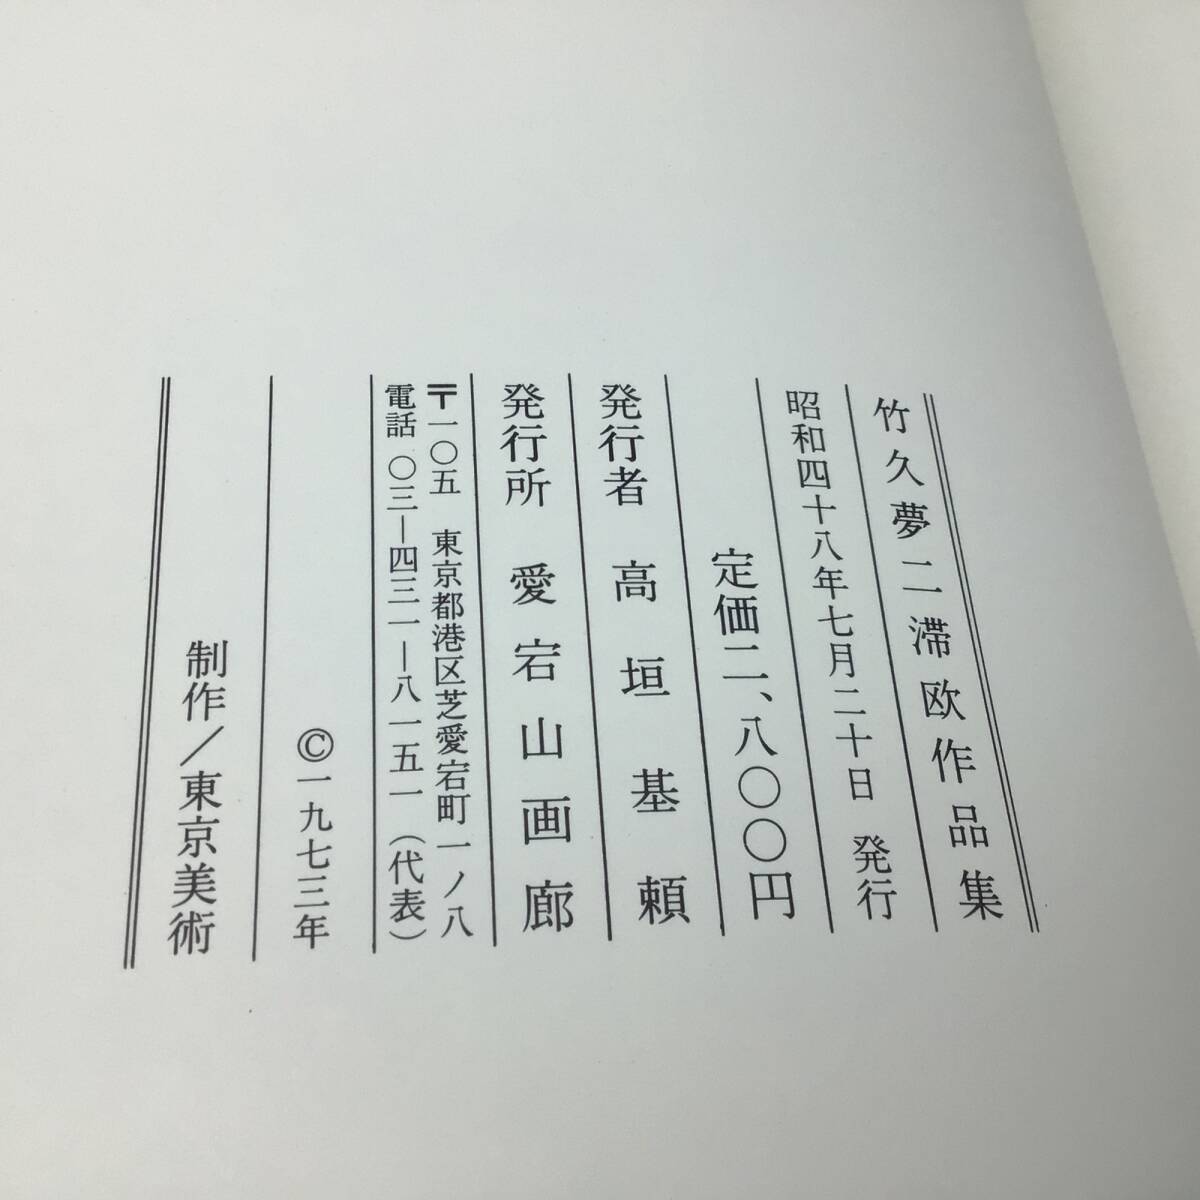 竹久夢二滞欧作品集
昭和四十八年七月二十日 発行
定価二、八〇〇円
発行者 高垣基頼
発行所 愛宕山画廊
〒一〇五 東京都港区芝愛宕町一ノ八
電話 〇三―四三一―八一五一(代表)
©一九七三年
制作/東京美術